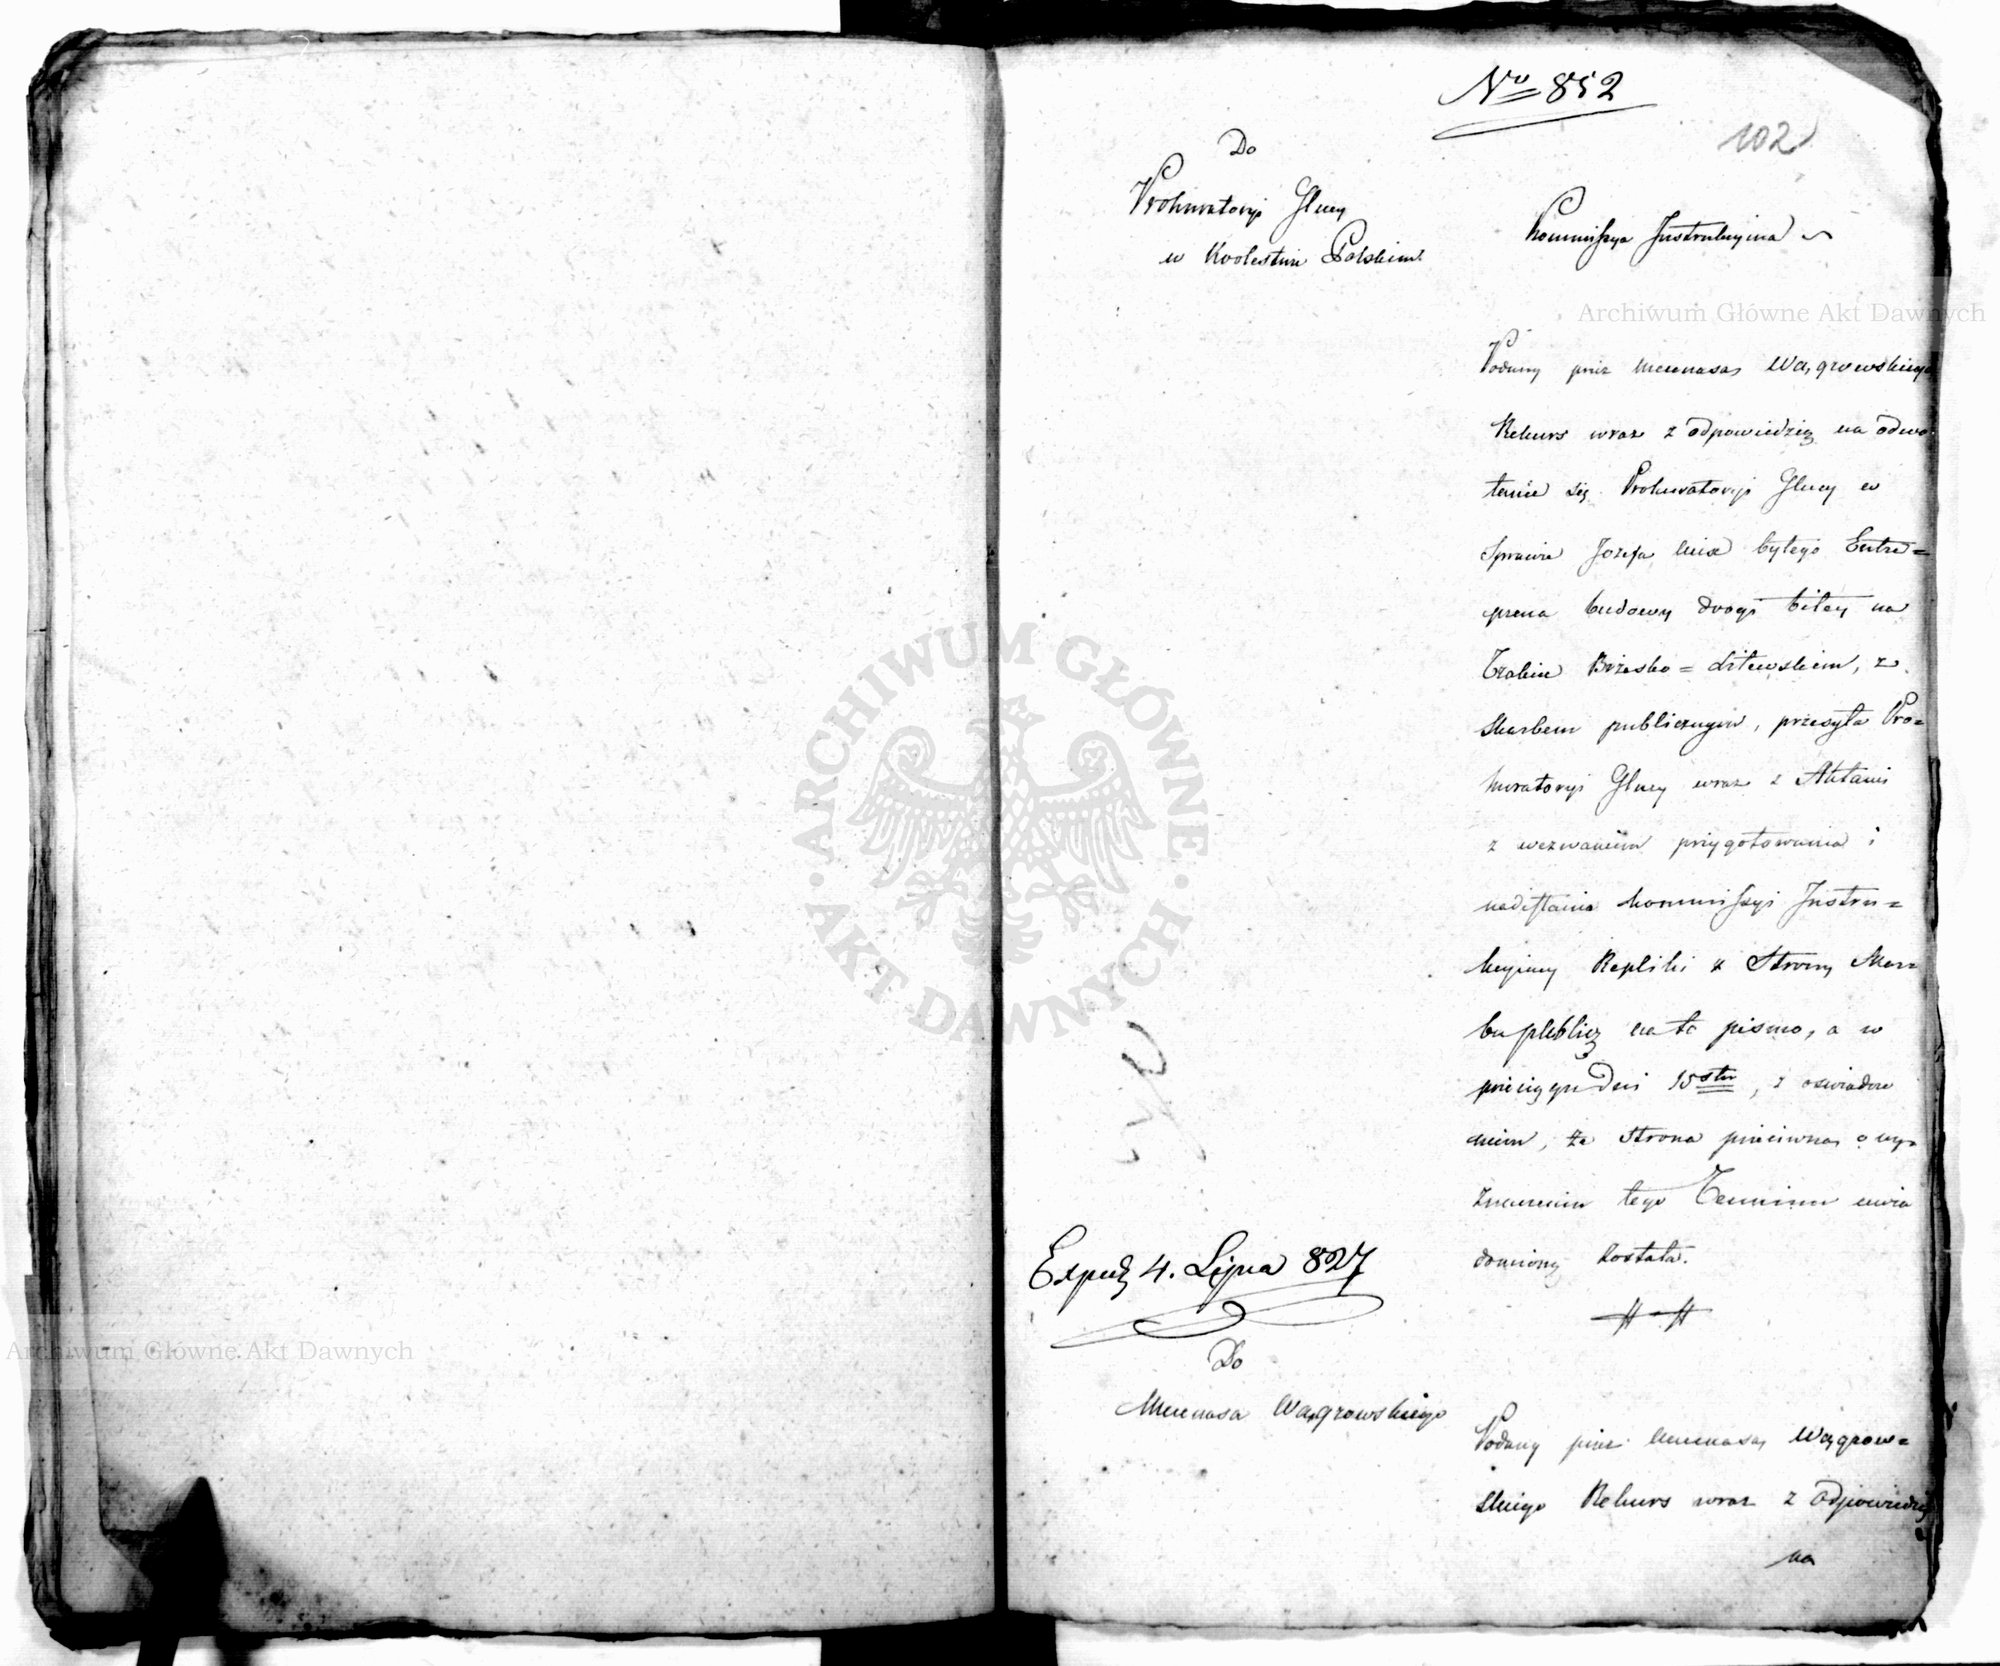 No 852
102
Do
Prokuratoryi Glney
w Krolestwie Polskiem
Kommissya Instrukcyina
Podany przez Mecenasa Wągrowskiego
Rekurs wraz z odpowiedzią na odwo
łanie się Prokuratoryi Glney w
Sprawie Jozefa byłego Entre=
prena budowy drogi bitey na
Trakcie Brzesko=Litewskiem, z
Skarbem publicznym, przesyła Pro=
kuratoryi Glney wraz z Aktami
z wezwaniem przygotowania i
nadesłania Kommissyi Instru=
kcyiney Repliki z Strony Skar=
bu publicz na to pismo, a w
przeciągu Dni 15stu, z oswiadcze
niem, że Strona przeciwna o wy=
znaczeniu tego Terminu uwia
domioną została.
Exped 4. Lipca 827
Do
Mecenasa Wągrowskiego
Podany przez Mecenasa Wągrow=
skiego Rekurs wraz z Odpowiedzią
na
Archiwum Główne Akt Dawnych
Archiwum Główne Akt Dawnych
ARCHIWUM GŁÓWNE · AKT DAWNYCH ·